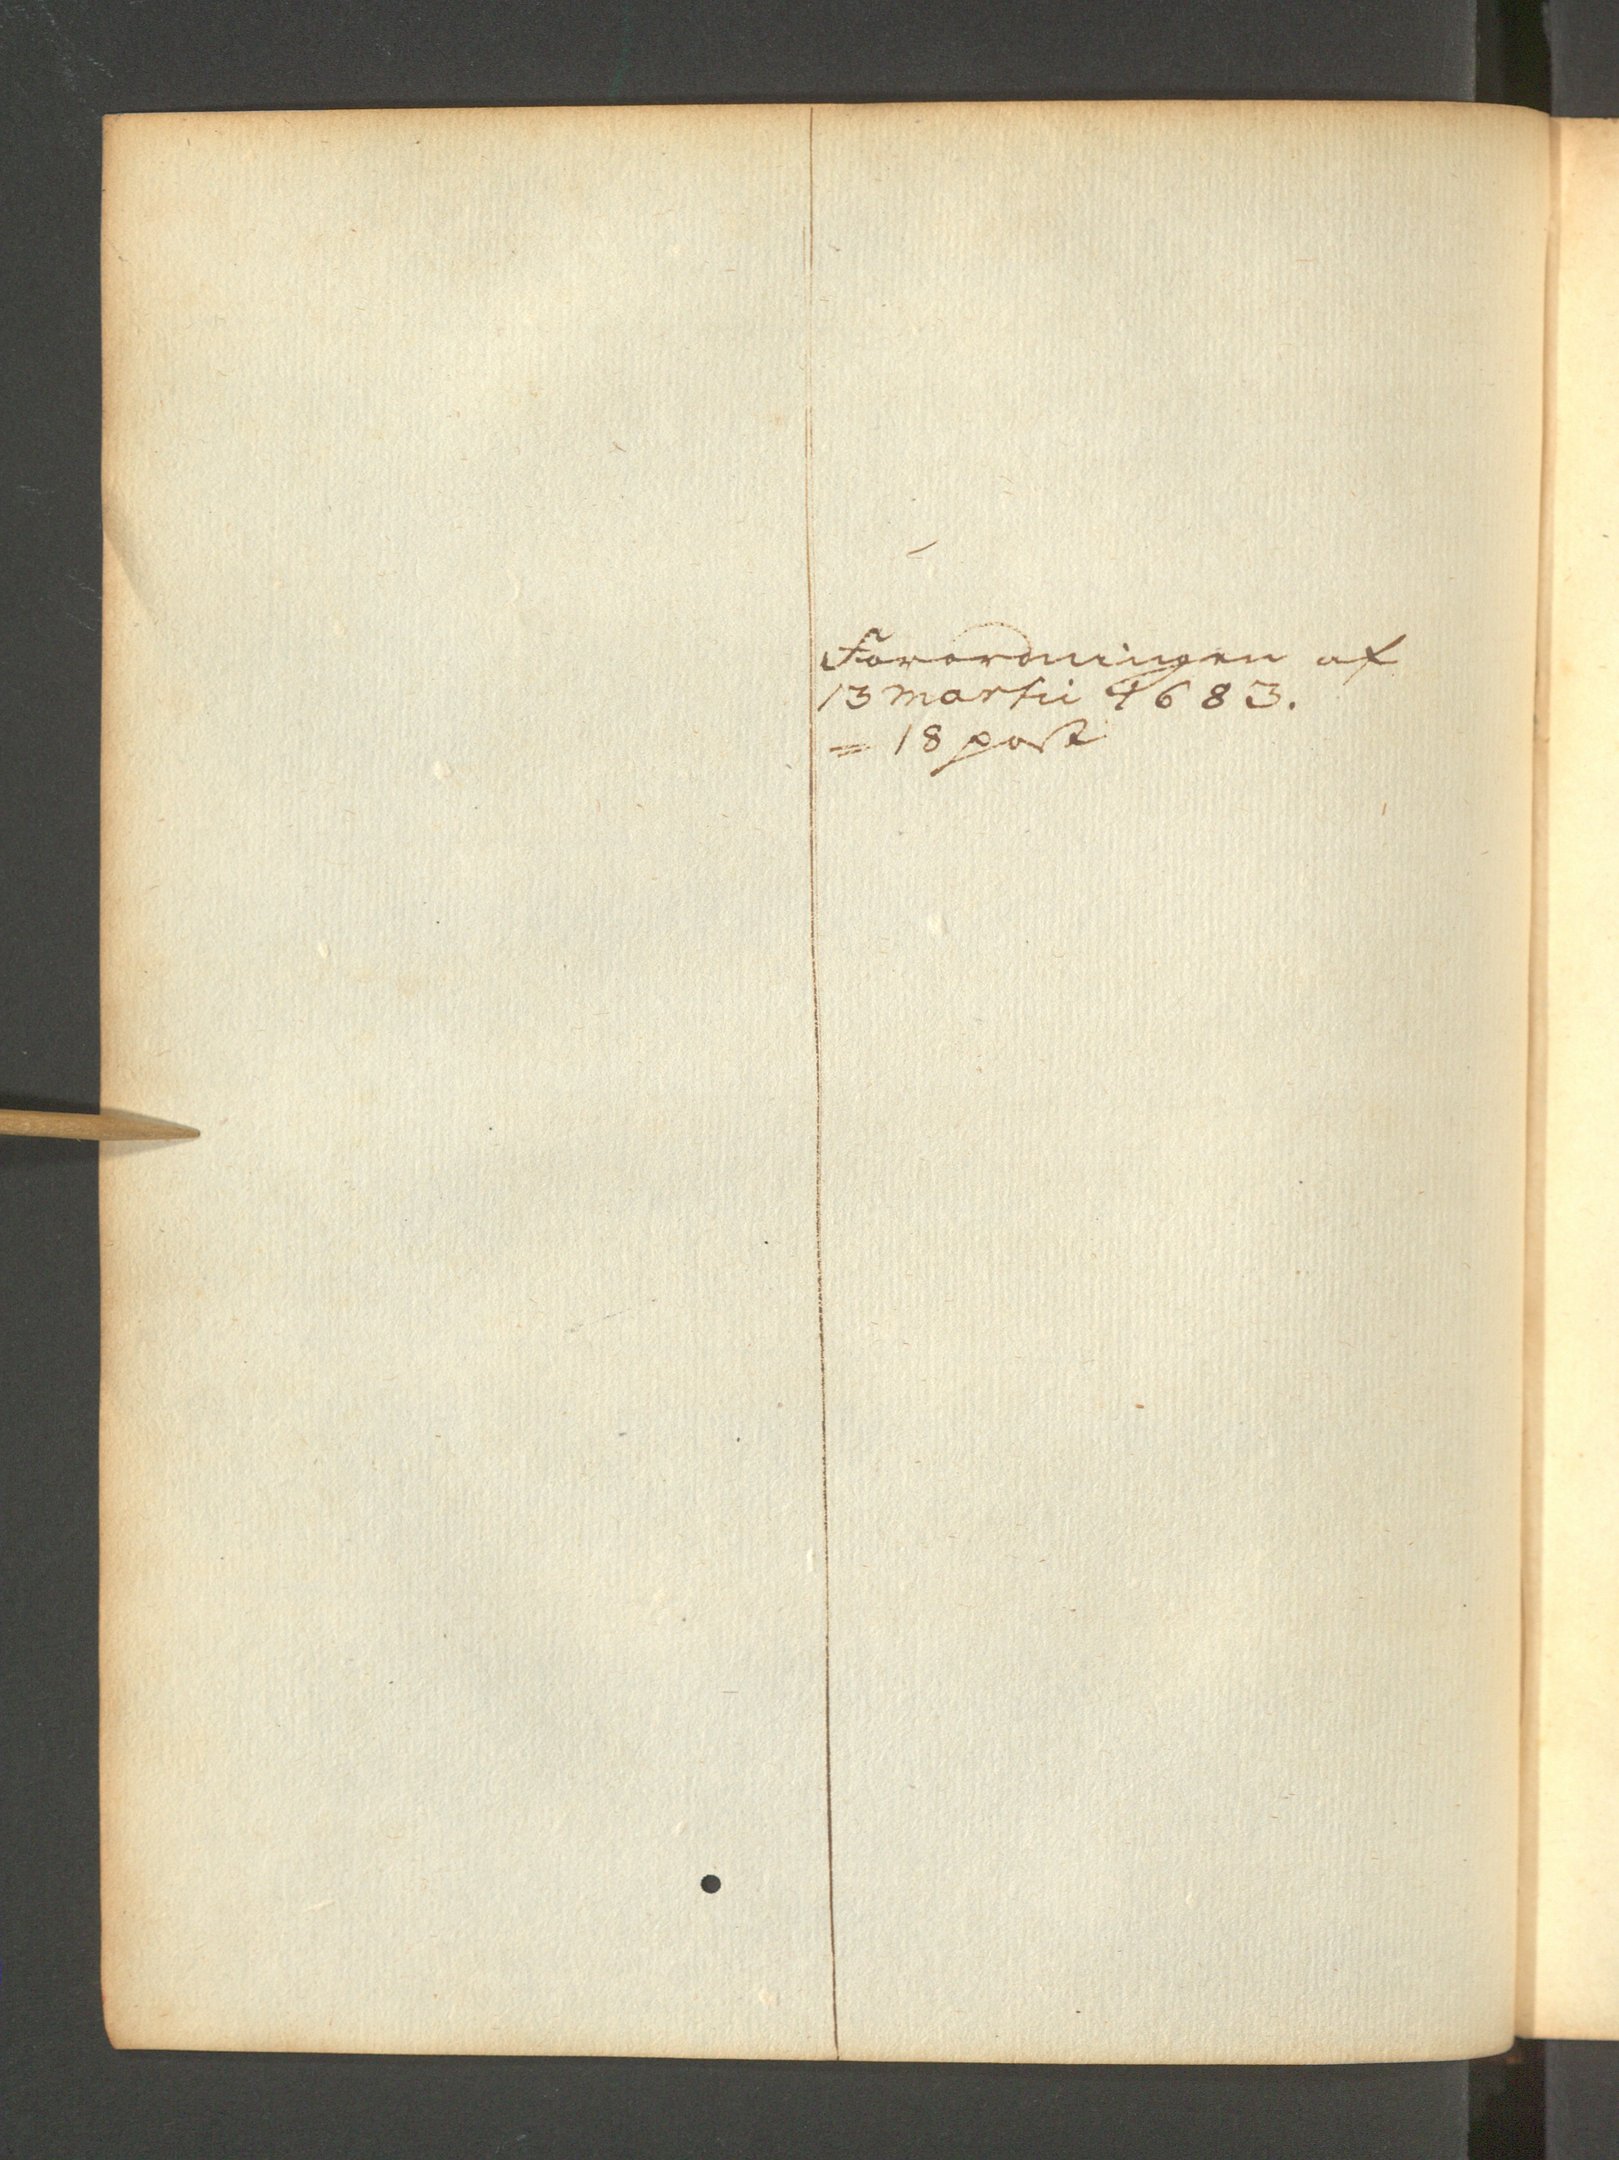 Forordningen af
13 Martii 1683.
= 18 post